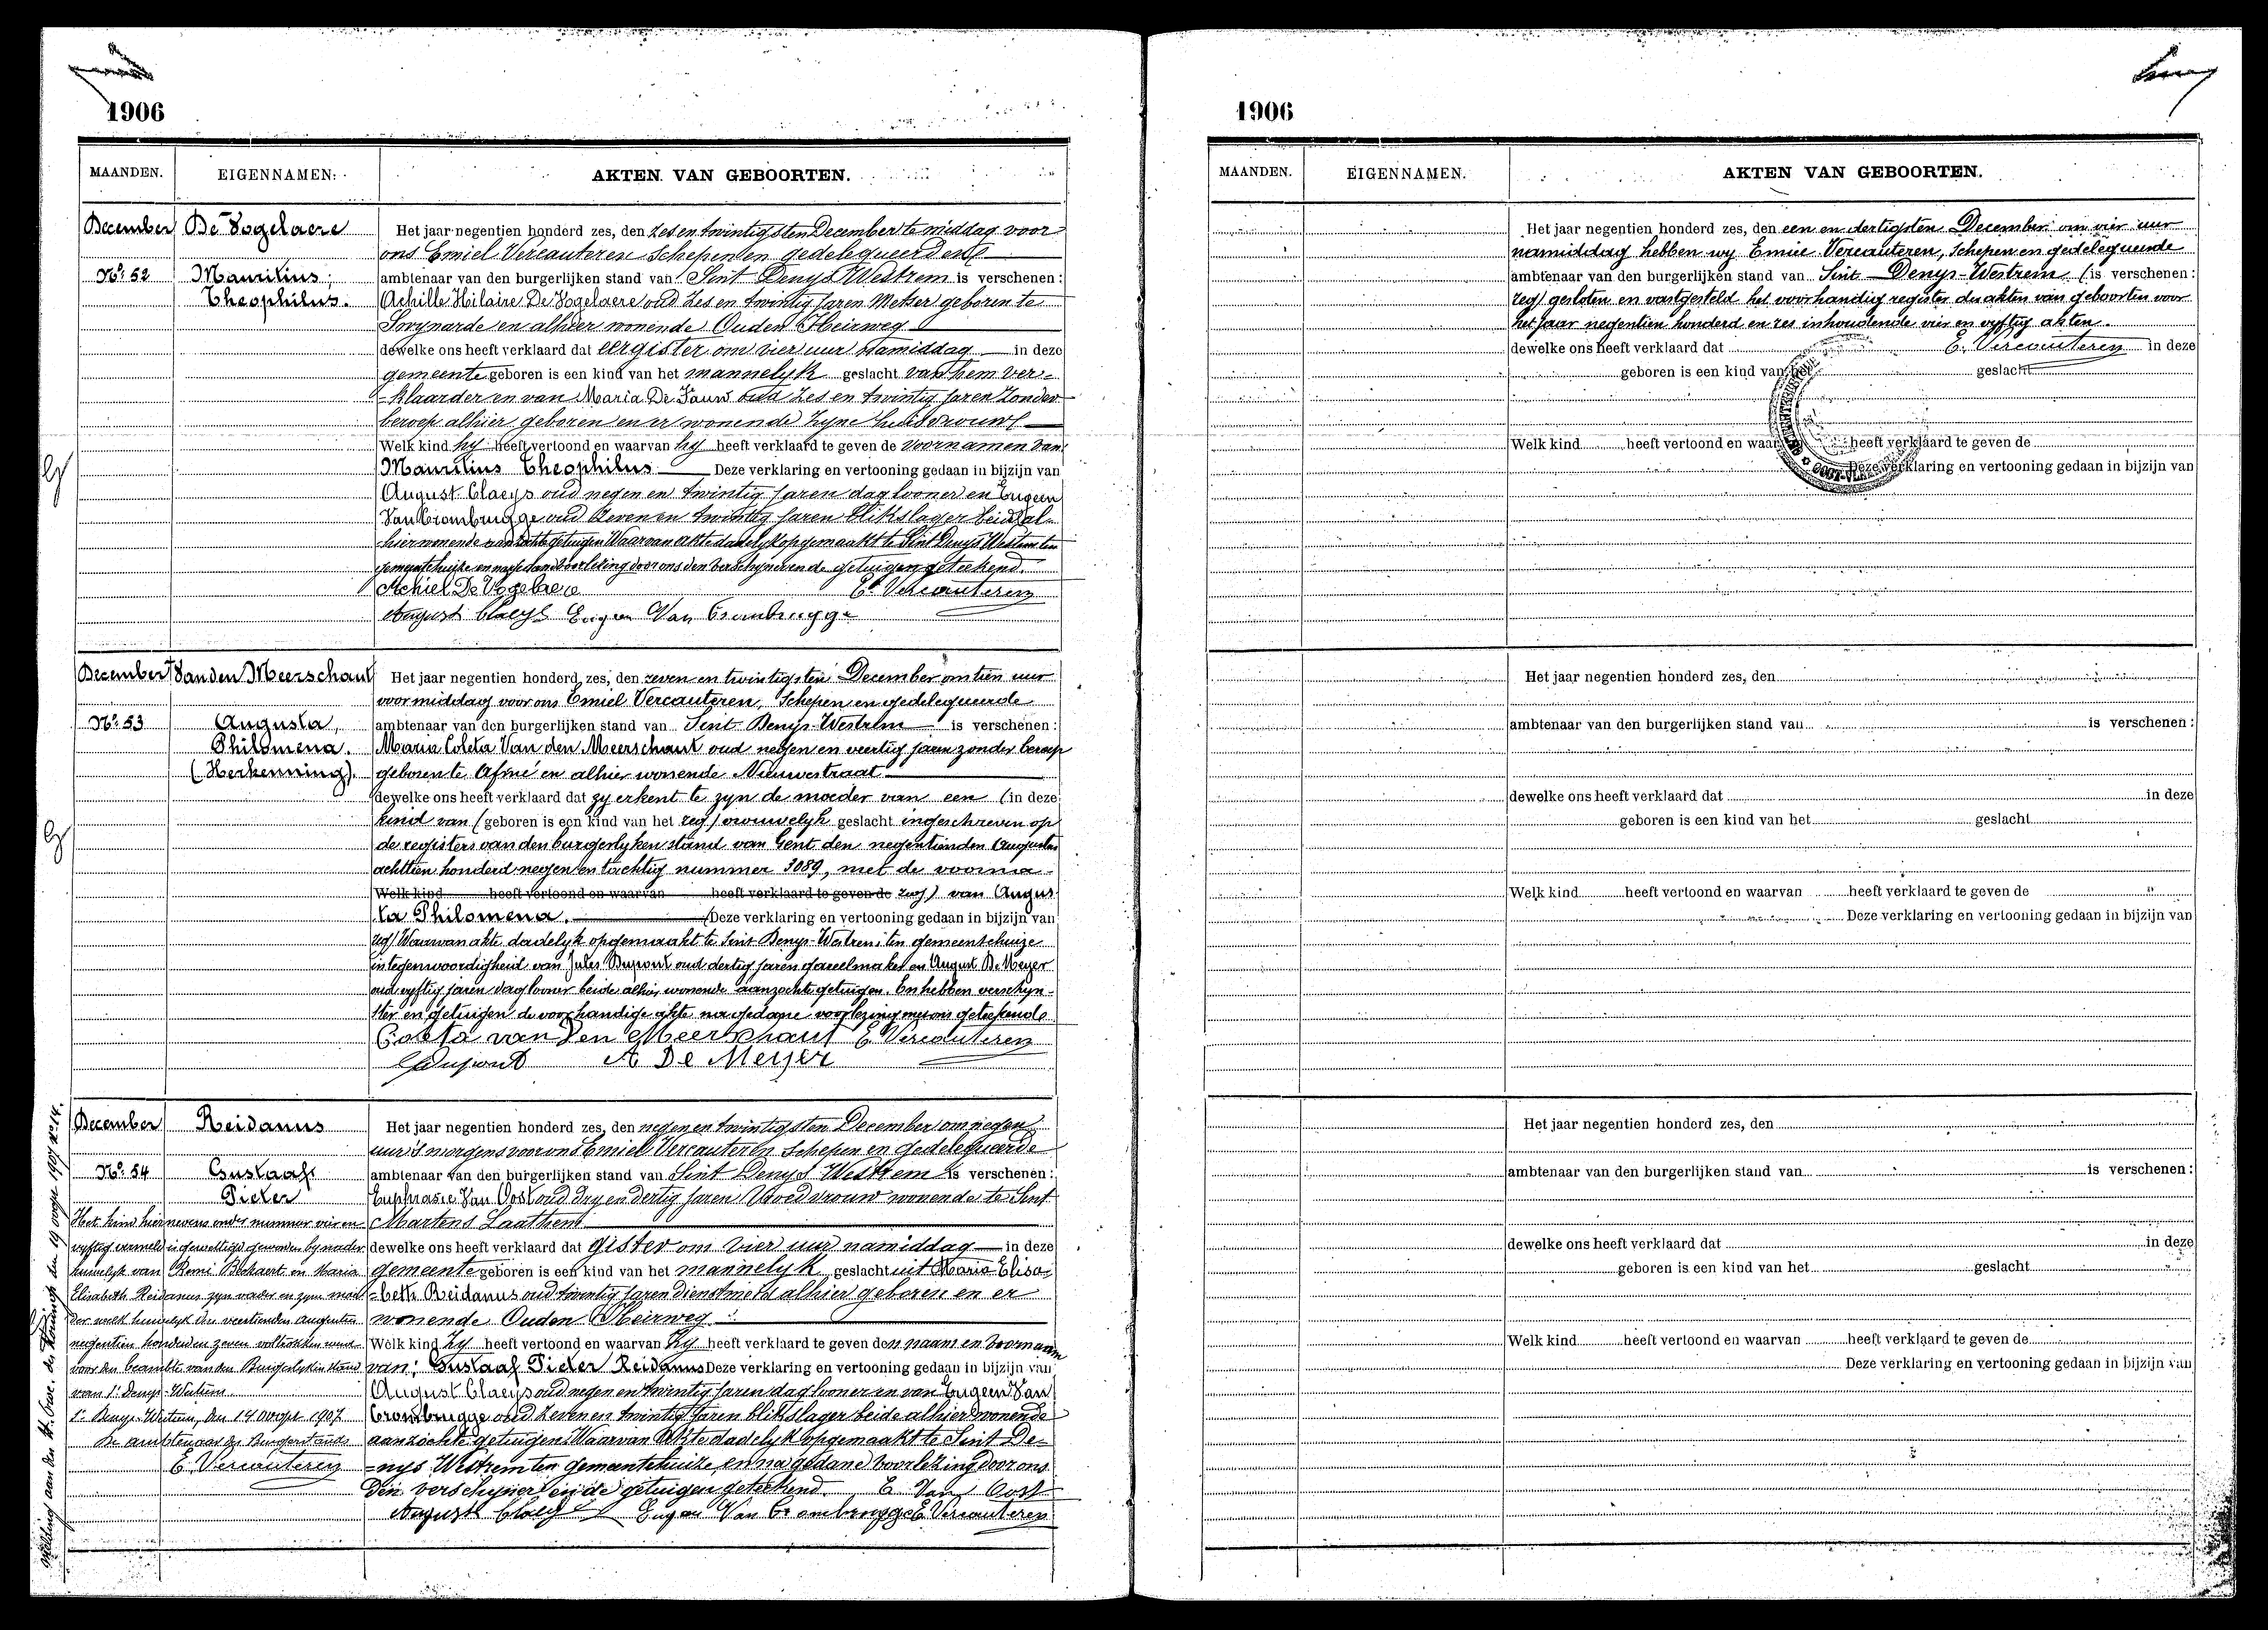 1906
MAANDEN. EIGENNAMEN. AKTEN VAN GEBOORTEN.
December De Vogelaere
Nº 52 Mauritius,
Theophilus.
Het jaar negentien honderd zes, den zes en twintigsten December te middag voor
ons Emiel Vercauteren Schepen en gedelegueerden
ambtenaar van den burgerlijken stand van Sint Denys Westrem is verschenen:
Achille Hilaire De Vogelaere oud zes en twintig jaren Metser geboren te
Swynarde en alhier wonende Ouden Heirweg
dewelke ons heeft verklaard dat eergister om vier uur namiddag in deze
gemeente geboren is een kind van het mannelyk geslacht van hem ver-
-klaarder en van Maria De Pauw oud zes en twintig jaren zonder
beroep alhier geboren en er wonende zyne huisvrouw
Welk kind hy heeft vertoond en waarvan hy heeft verklaard te geven de voornamen van
Mauritius Theophilus Deze verklaring en vertooning gedaan in bijzijn van
August Claeys oud negen en twintig jaren daglooner en Eugeen
Van Crombrugge oud zeven en twintig jaren blikslager beide al-
-hier wonende aanzochte getuigen Waarvan akte dadelyk opgemaakt te Sint Denys Westrem ten
gemeentehuize en na gedane voorlezing door ons den verschynere en de getuigen geteekend.
Achiel De Vogelaere E. Vercauteren
August Claeys Eugeen Van Crombrugge
December Van den Meerschaut
Nº 53 Augusta,
Philomena.
(Herkenning).
Het jaar negentien honderd zes, den zeven en twintigsten December om tien uur
voormiddag voor ons Emiel Vercauteren, Schepen en gedelegueerde
ambtenaar van den burgerlijken stand van Sint Denys-Westrem is verschenen:
Maria Coleta Van den Meerschaut oud negen en veertig jaren zonder beroep
geboren te Afsné en alhier wonende Nieuwestraat
dewelke ons heeft verklaard dat zy erkent te zyn de moeder van een (in deze
kind van (geboren is een kind van het zeg) vrouwelyk geslacht ingeschreven op
de registers van den burgerlyken stand van Gent den negentienden Augustus
achttien honderd negen en tachtig nummer 3089, met de voorna-
Welk kind heeft vertoond en waarvan heeft verklaard te geven de zeg) van Augus
ta Philomena. (Deze verklaring en vertooning gedaan in bijzijn van
zeg) Waarvan akte dadelyk opgemaakt te Sint Denys-Westrem ten gemeentehuize
in tegenwoordigheid van Jules Dupont oud dertig jaren gareelmaker en August De Meyer
oud vyftig jaren daglooner beide alhier wonende aanzochte getuigen. En hebben verschyn-
ster en getuigen de voorhandige akte na gedane voorlezing met ons geteekend
Coleta van Den Meerschaut E. Vercauteren
J Dupont A De Meyer
December Reidanus
Nº 54 Gustaaf
Pieter
Het jaar negentien honderd zes, den negen en twintigsten December om negen
uur 's morgens voor ons Emiel Vercauteren Schepen en gedelegueerde
ambtenaar van den burgerlijken stand van Sint Denys Westrem is verschenen:
Euphrasie Van Oost oud dry en dertig jaren Vroedvrouw wonende te Sint
Martens Laathem
dewelke ons heeft verklaard dat gister om vier uur namiddag in deze
gemeente geboren is een kind van het mannelyk geslacht uit Maria Elisa-
-beth Reidanus oud twintig jaren dienstmeid alhier geboren en er
wonende Ouden Heirweg
Welk kind zy heeft vertoond en waarvan zy heeft verklaard te geven den naam en voornaam
van: Gustaaf Pieter Reidanus Deze verklaring en vertooning gedaan in bijzijn van
August Claeys oud negen en twintig jaren daglooner en van Eugeen Van
Crombrugge oud zeven en twintig jaren blikslager beide alhier wonende
aanzochte getuigen. Waarvan Akte dadelyk opgemaakt te Sint De-
-nys Westrem ten gemeentehuize, en na gedane voorlezing door ons
den verschyner en de getuigen geteekend. E. Van Oost
August Claeys Eugeen Van Crombrugge E Vercauteren
Het kind hiernevens onder nummer vier en
vyftig vermeld is gewettigd geworden by nader
huwelyk van Remi Bekaert en Maria
Elisabeth Reidanus zyn vader en zyne moe
der welk huwelyk den veertienden Augusten
negentien honderd en zeven voltrokken werd
voor den beambte van den Burgerlyken stand
van St Denys-Westrem.
St Denys-Westrem, den 14 oogst 1907
De ambtenaar des Burgerstands
E. Vercauteren
Melding aan den H. Proc. des Konings den 19 oogst 1907 Nº 14.
1906
MAANDEN. EIGENNAMEN. AKTEN VAN GEBOORTEN.
Het jaar negentien honderd zes, den een en dertigsten December om vier uur
namiddag hebben wy Emiel Vercauteren, Schepen en gedelegueerde
ambtenaar van den burgerlijken stand van Sint Denys-Westrem (is verschenen:
zeg) gesloten en vastgesteld het voorhandig register der akten van geboorten voor
het jaar negentien honderd en zes inhoudende vier en vyftig akten.
dewelke ons heeft verklaard dat E. Vercauteren in deze
geboren is een kind van het geslacht
Welk kind heeft vertoond en waarvan heeft verklaard te geven de
Deze verklaring en vertooning gedaan in bijzijn van
Het jaar negentien honderd zes, den
ambtenaar van den burgerlijken stand van is verschenen:
dewelke ons heeft verklaard dat in deze
geboren is een kind van het geslacht
Welk kind heeft vertoond en waarvan heeft verklaard te geven de
Deze verklaring en vertooning gedaan in bijzijn van
Het jaar negentien honderd zes, den
ambtenaar van den burgerlijken stand van is verschenen:
dewelke ons heeft verklaard dat in deze
geboren is een kind van het geslacht
Welk kind heeft vertoond en waarvan heeft verklaard te geven de
Deze verklaring en vertooning gedaan in bijzijn van